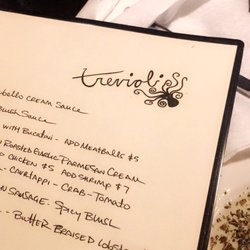 treviolis
bello cream sauce
Sauce
with Bucatini - add Meatballs $5
Roasted Garlic Parmesan Cream
chicken $5 add shrimp $7
- Cavatappi - Crab - Tomato
Sausage - Spicy Blush
- Butter Braised Lobster